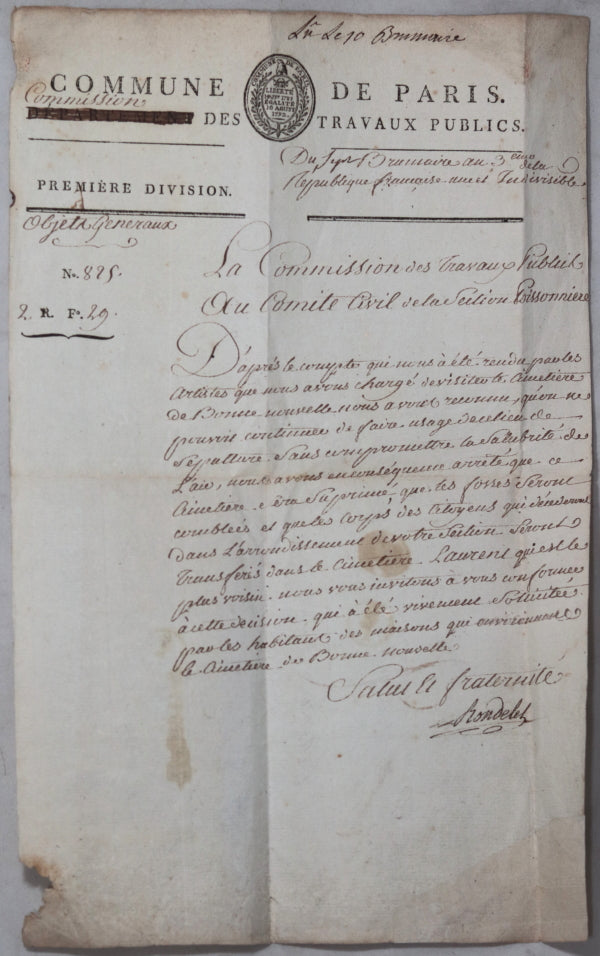 Lu Le 10 Brumaire
COMMUNE DE PARIS.
Commission
DÉPARTEMENT DES TRAVAUX PUBLICS.
COMMUNE DE PARIS
LIBERTÉ
ÉGALITÉ
10 AOUST
1792
Du Sept Brumaire an 3eme de la
République française une et Indivisible
PREMIÈRE DIVISION.
Objets Generaux
No. 825.
2 R. Fo. 29.
La Commission des Travaux Publics
Au Comité Civil de la Section Poissonniere
D'après le compte qui nous à été rendu par les
Artistes que nous avons chargé de visiter le Cimetière
de Bonne nouvelle nous avons reconnu qu'on ne
pouvoit continuer de faire usage de ce lieu de
Sépulture Sans compromettre la Salubrité de
L'air, nous avons en conséquence arrêté que ce
Cimetiere sera Suprimé que les fosses Seront
comblées et que les Corps des Citoyens qui décéderont
dans L'arrondissement de votre Section Seront
Transferés dans le Cimetière Laurent qui est le
plus voisin. nous vous invitons à vous conformer
à cette decision qui à été vivement Sollicitée
par les habitans des maisons qui environnent
le Cimetière de Bonne nouvelle
Salut et fraternité
Rondelet